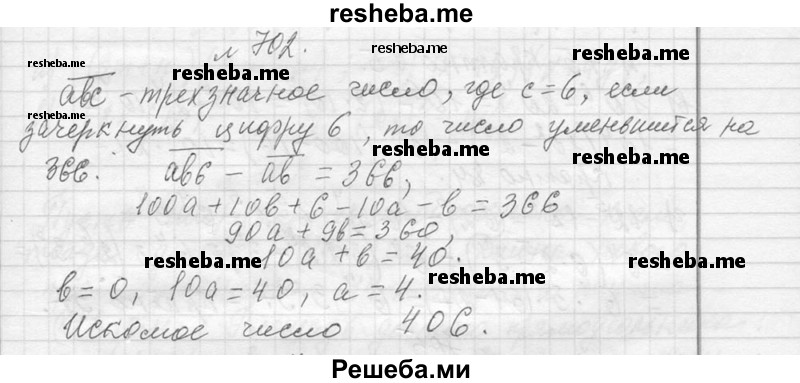 resheba.me
№ 702.
resheba.me
resheba.me
resheba.me
abc - трехзначное число, где c=6, если
зачеркнуть цифру 6, то число уменьшится на
resheba.me
resheba.me
366. ab6 - ab = 366,
100a+10b+6-10a-b=366
90a+9b=360,
10a+b=40.
resheba.me
resheba.me
resheba.me
b=0, 10a=40, a=4.
Искомое число 406.
resheba.me
Решеба.ми